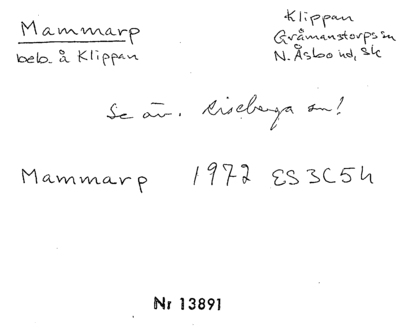 Mammarp
beb. å Klippan
Klippan
Gråmanstorps sn
N. Åsbo hd, Sk
Se äv. Riseberga sn!
Mammarp 1972 ES 3C5h
Nr 13891